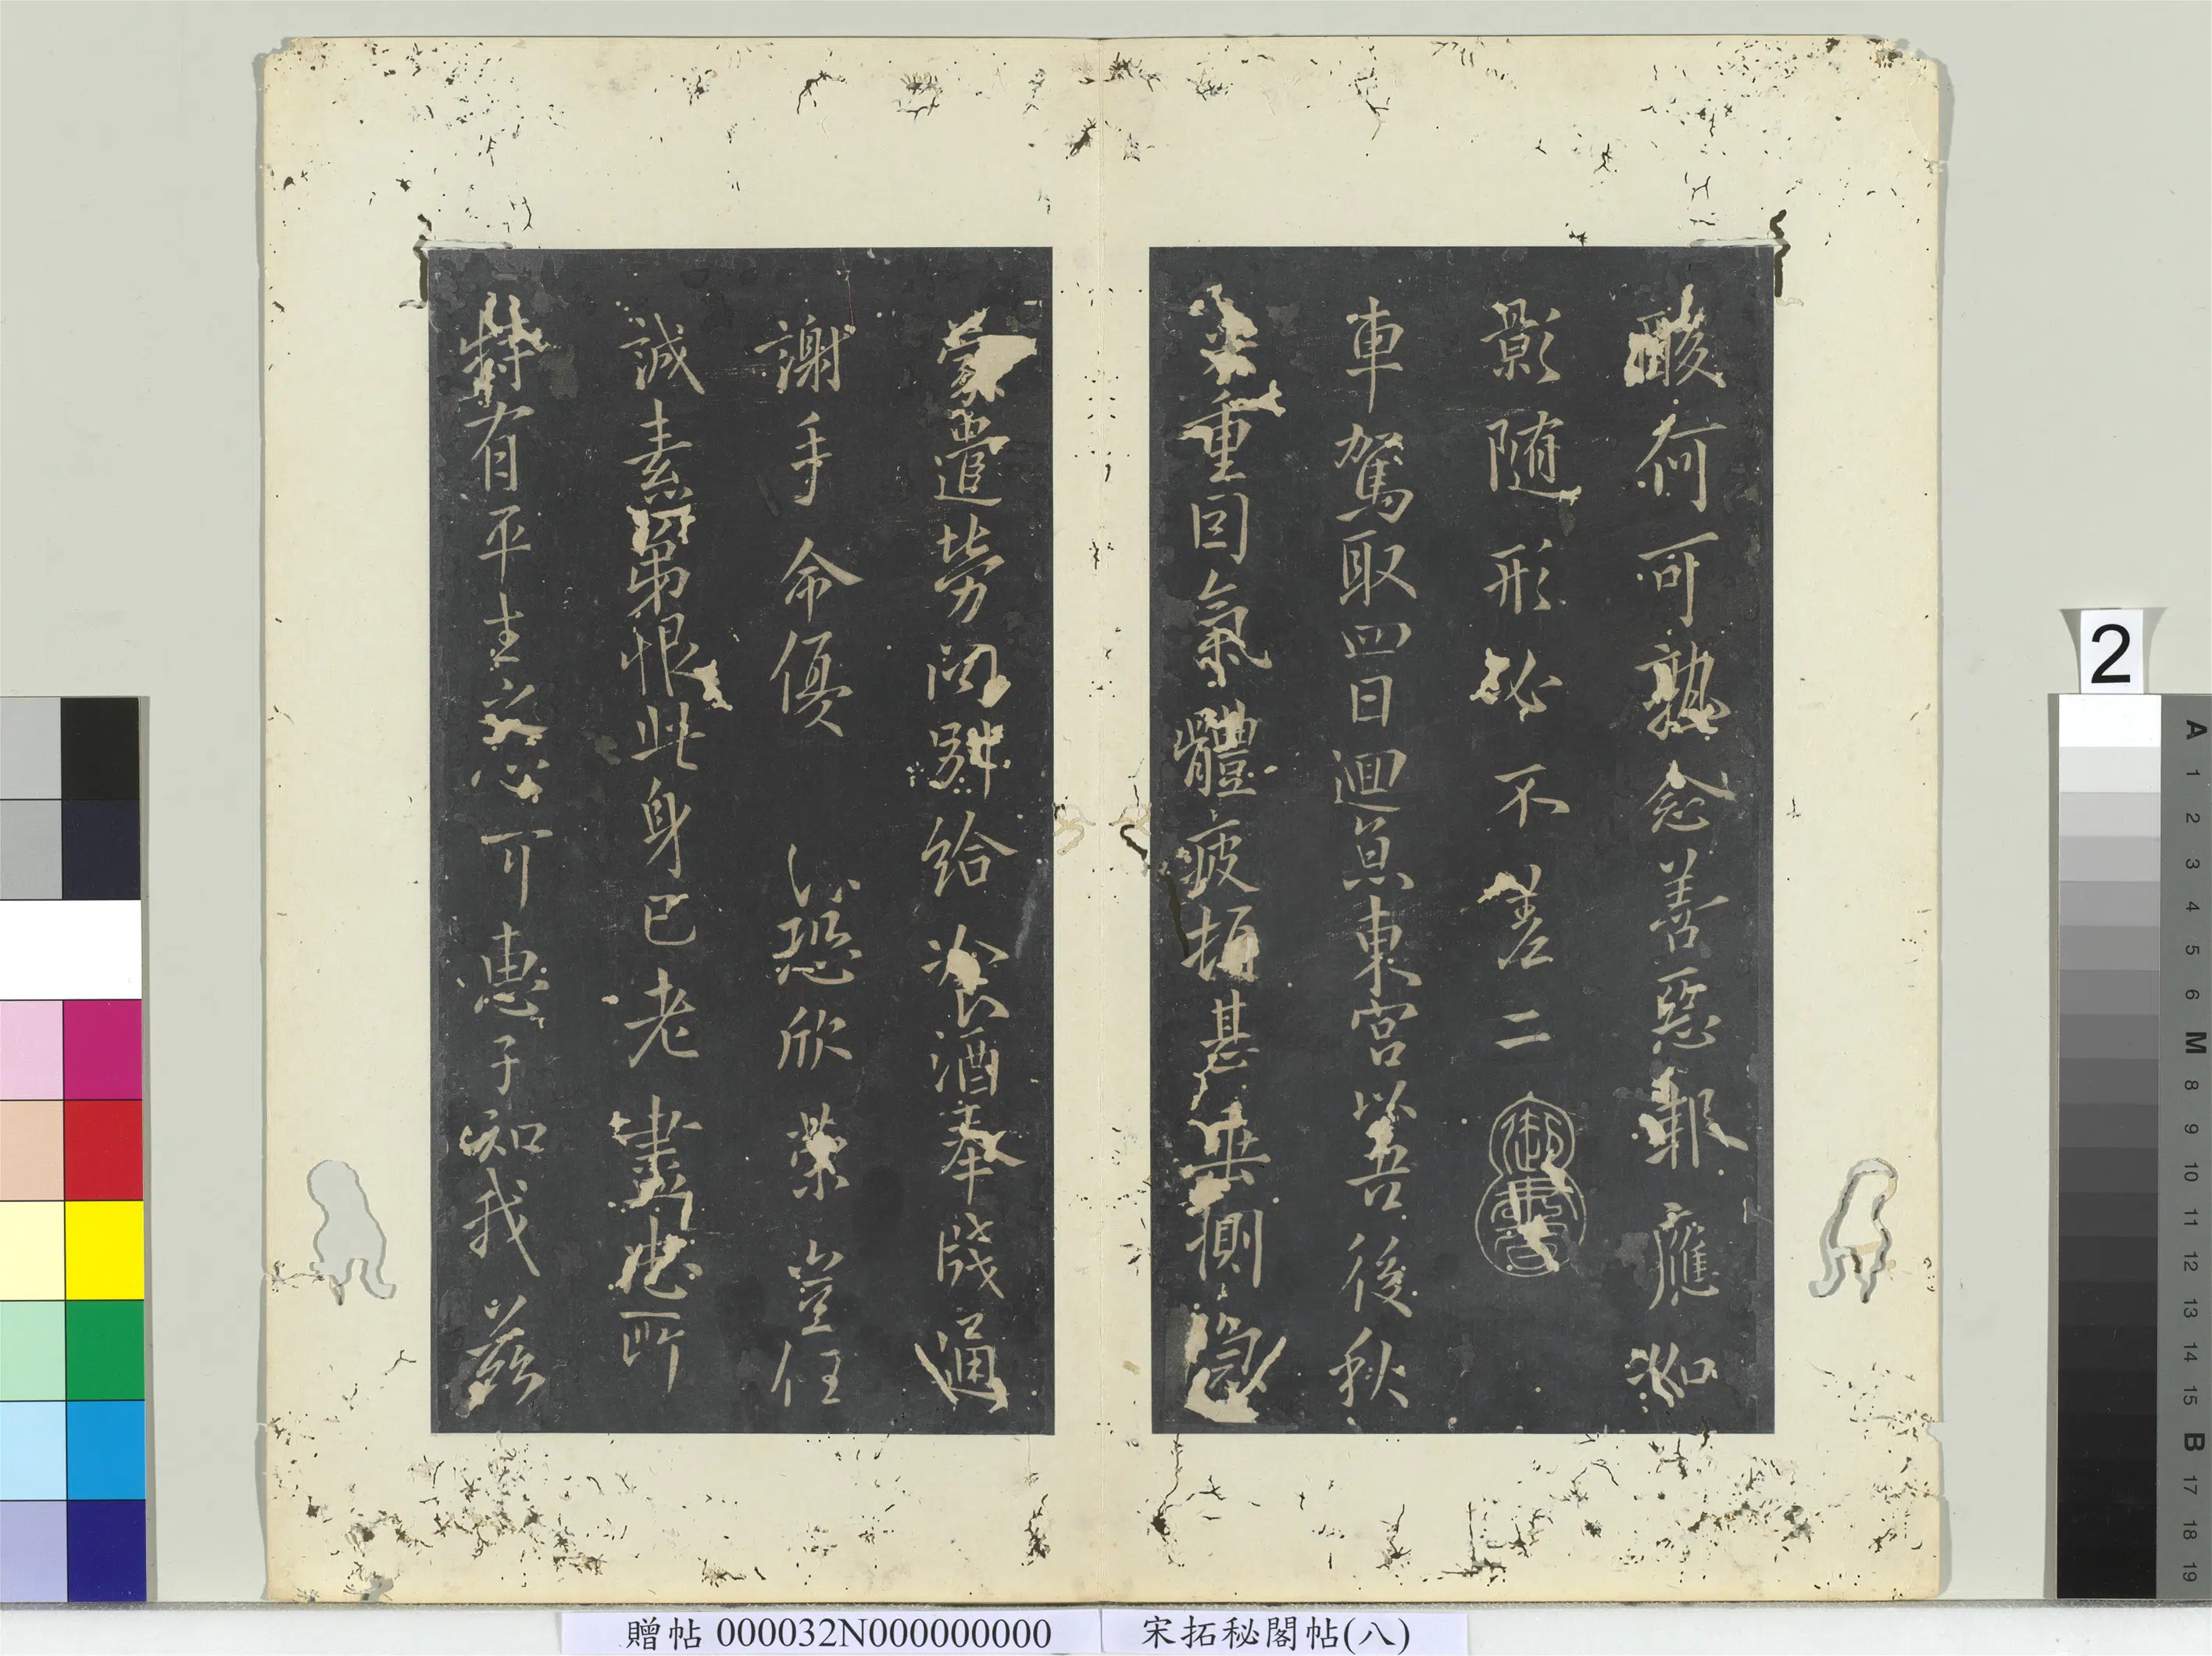 酸何可熟念善惡報應如
影隨形必不差二
御書
車駕取四日迴京東宮以吾後秋
重因氣體疲頓甚垂惻
蒙遣勞問歸給 酒奉牋通
謝手命優 恐欣榮豈任
誠素弟恨此身已老書此所
特有平生之心可惠子知我兹
2
A 1 2 3 4 5 6 M 8 9 10 11 12 13 14 15 B 17 18 19
贈帖 000032N000000000
宋拓秘閣帖(八)